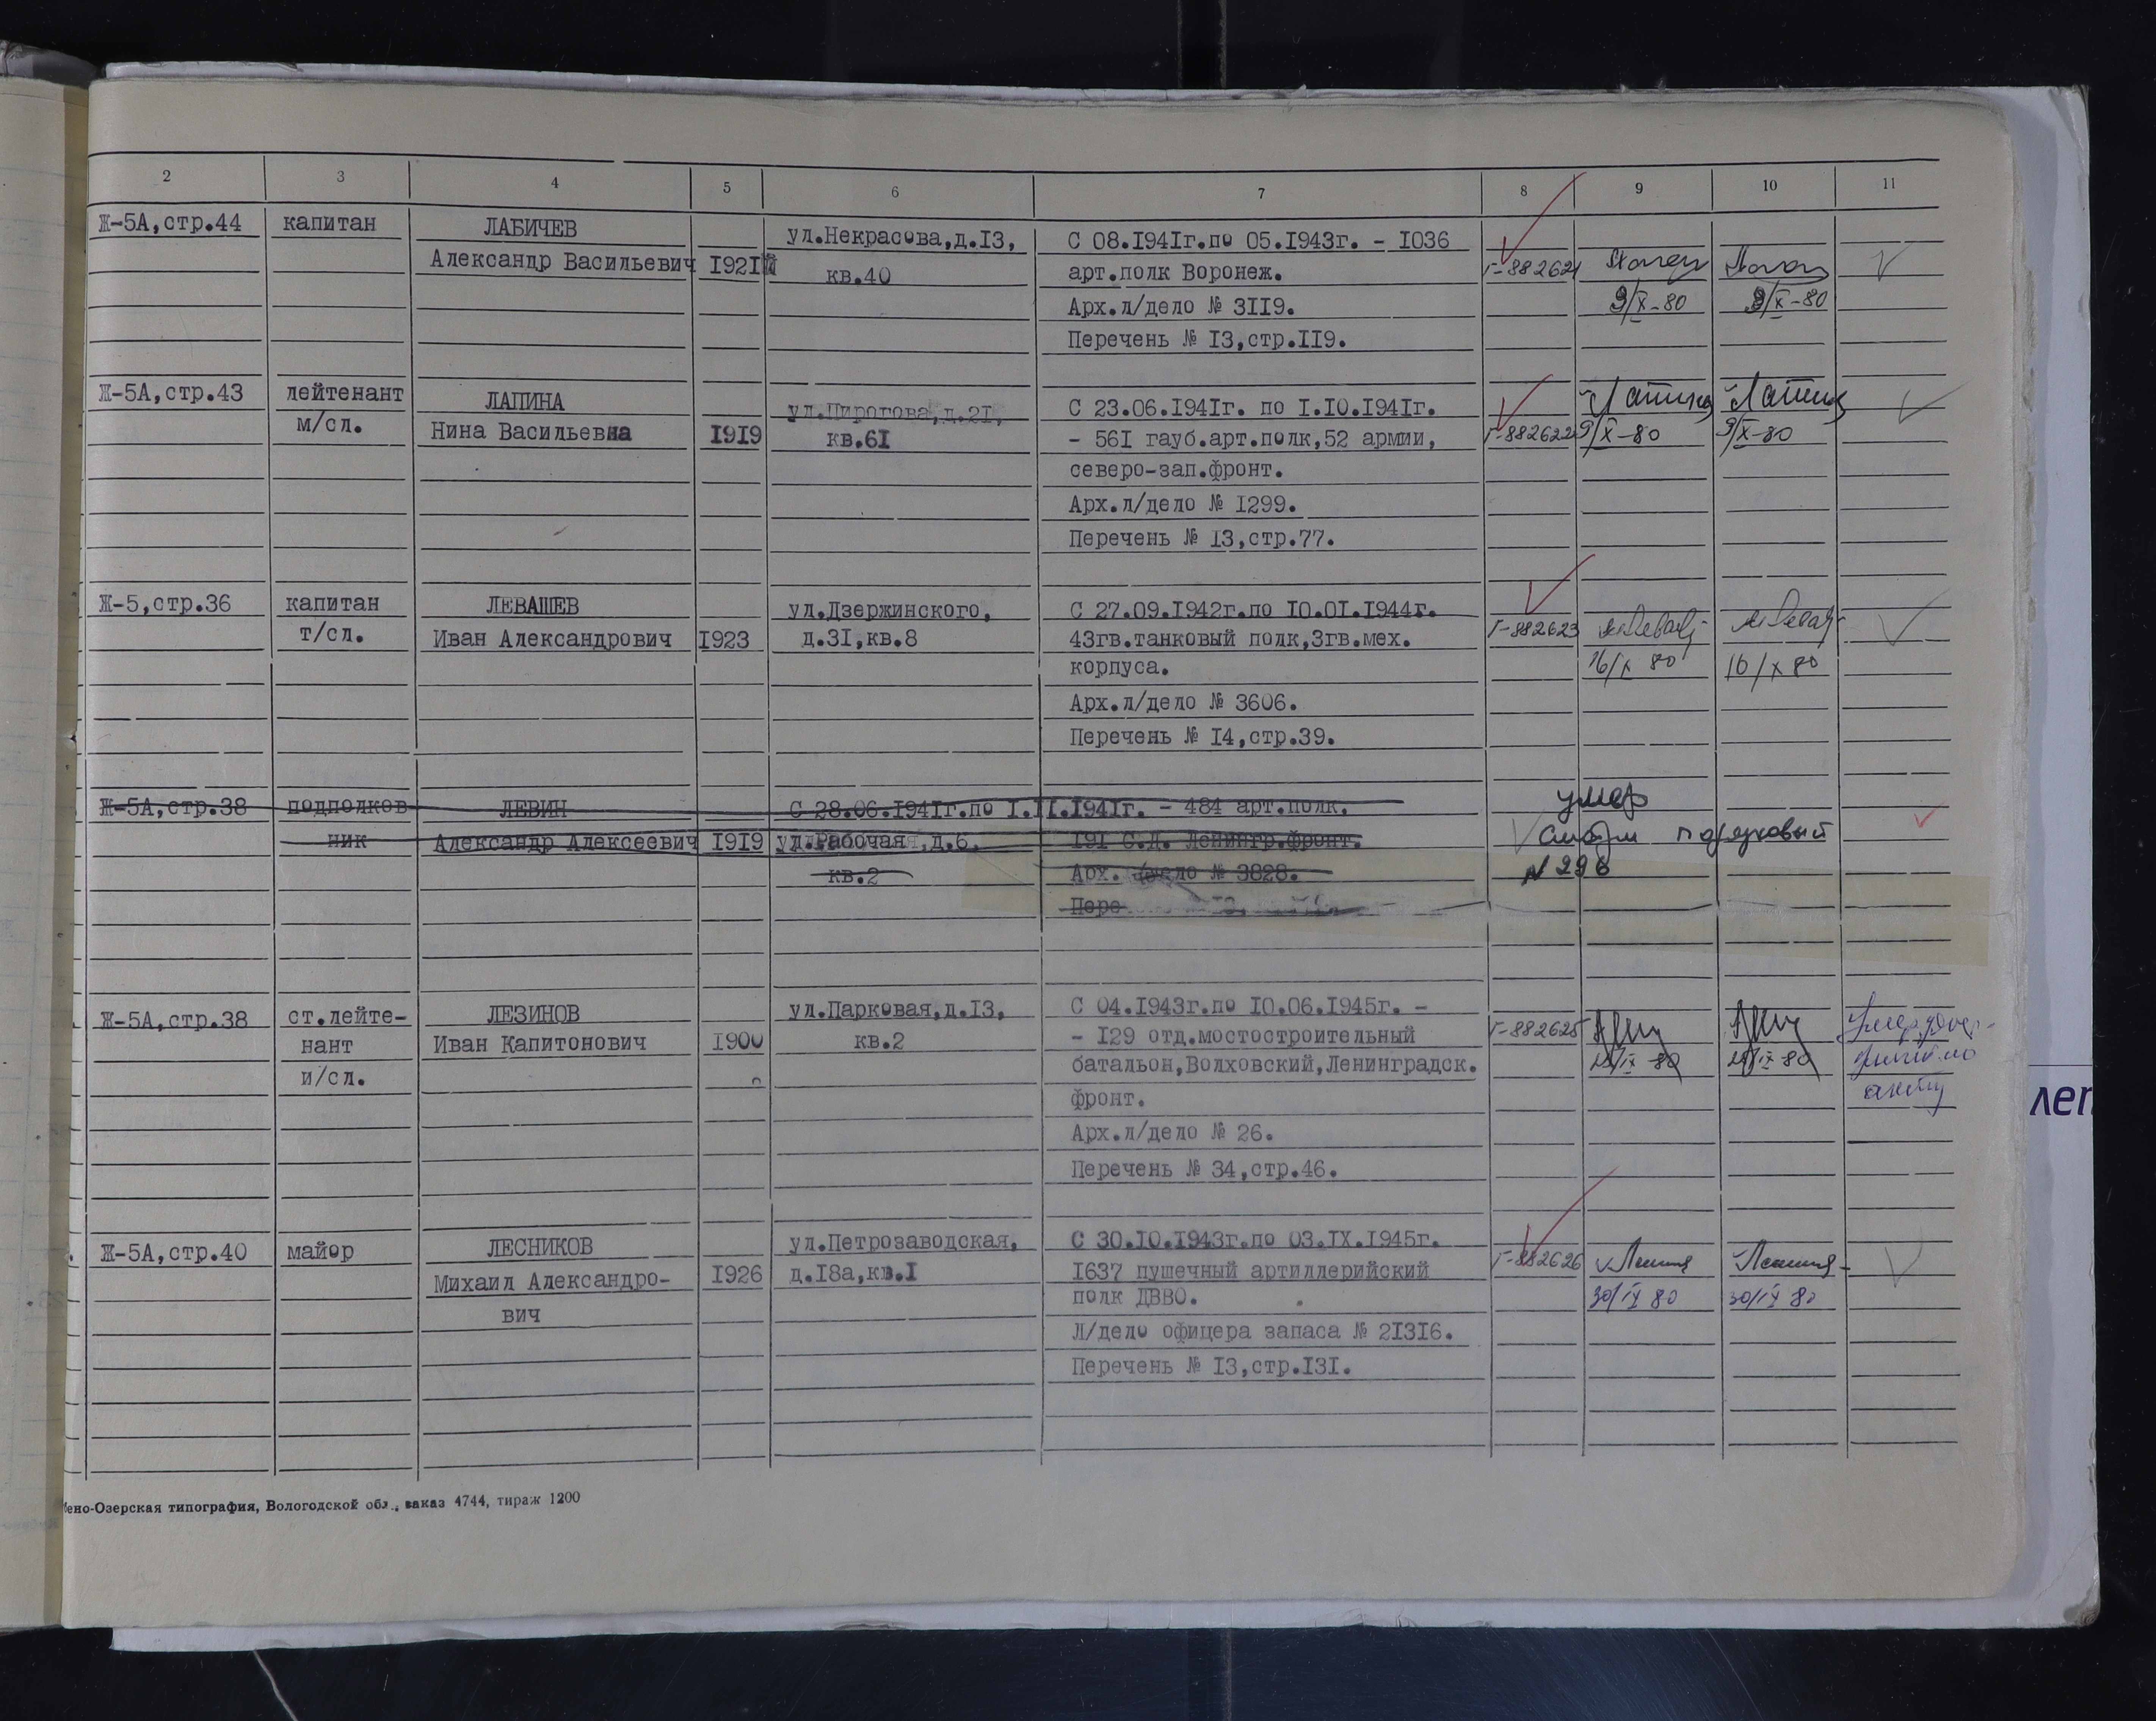 2 3 4 5 6 7 8 9 10 11
Ж-5А,стр.44 капитан ЛАБИЧЕВ ул.Некрасова,д.I3, С 08.I94Iг.по 05.I943г. - I036
Александр Васильевич I92I кв.40 арт.полк Воронеж. Г-882621
Арх.л/дело № 3II9. 9/X-80 9/X-80
Перечень № I3,стр.II9.
Ж-5А,стр.43 лейтенант ЛАПИНА ул.Пирогова,д.2I, С 23.06.I94Iг. по I.I0.I94Iг. Лапина Лапина
м/сл. Нина Васильевна I9I9 кв.6I - 56I гауб.арт.полк,52 армии, Г-882622 9/X-80 9/X-80
северо-зап.фронт.
Арх.л/дело № I299.
Перечень № I3,стр.77.
Ж-5,стр.36 капитан ЛЕВАШЕВ ул.Дзержинского, С 27.09.I942г.по I0.0I.I944г.
т/сл. Иван Александрович I923 д.3I,кв.8 43гв.танковый полк,3гв.мех. Г-882623
корпуса. 16/X 80 16/X 80
Арх.л/дело № 3606.
Перечень № I4,стр.39.
Ж-5А,стр.38 подполков ЛЕВИН С 28.06.I94Iг.по I.II.I94Iг. - 484 арт.полк. умер
ник Александр Алексеевич I9I9 ул.Рабочая,д.6. I9I С.Д. Ленингр.фронт. смотри порядковый
кв.2 Арх. дело № 3828. № 296
Пере
Ж-5А,стр.38 ст.лейте- ЛЕЗИНОВ ул.Парковая,д.I3, С 04.I943г.по I0.06.I945г. -
нант Иван Капитонович I900 кв.2 - I29 отд.мостостроительный Г-882625 Умер удос-
и/сл. батальон,Волховский,Ленинградск.
фронт. акту
Арх.л/дело № 26.
Перечень № 34,стр.46.
Ж-5А,стр.40 майор ЛЕСНИКОВ ул.Петрозаводская, С 30.I0.I943г.по 03.IX.I945г.
Михаил Александро- I926 д.I8а,кв.I I637 пушечный артиллерийский Г-882626
вич полк ДВВО. 30/IX 80 30/IX 80
Л/дело офицера запаса № 2I3I6.
Перечень № I3,стр.I3I.
ено-Озерская типография, Вологодской обл., заказ 4744, тираж 1200
леп